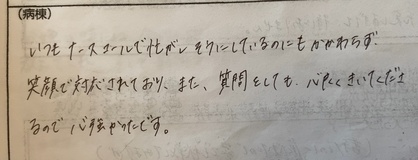 (病棟)
いつもナースコールで忙がしそうにしているのにもかかわらず
笑顔で対応されており、また、質問をしても、心良くきいてくださ
るので心強かったです。